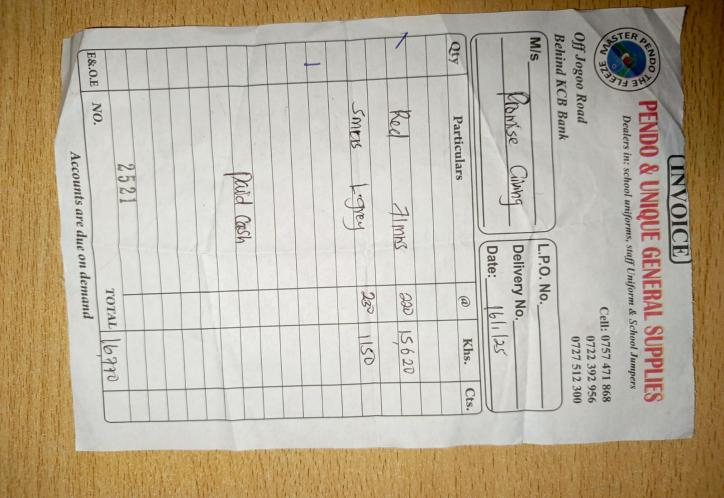 INVOICE
MASTER PENDO THE FLEEZE
PENDO & UNIQUE GENERAL SUPPLIES
Dealers in: school uniforms, staff Uniform & School Jumpers
Off Jogoo Road
Behind KCB Bank
Cell: 0757 471 868
0722 392 956
0727 512 300
M/s Promise
L.P.O. No.
Delivery No.
Date: 16/1/25
Qty Particulars @ Khs. Cts.
Red 71mtrs 220 15,620
5mtrs L.grey 230 1150
Paid Cash
E&.O.E NO. 2521 TOTAL 16,770
Accounts are due on demand